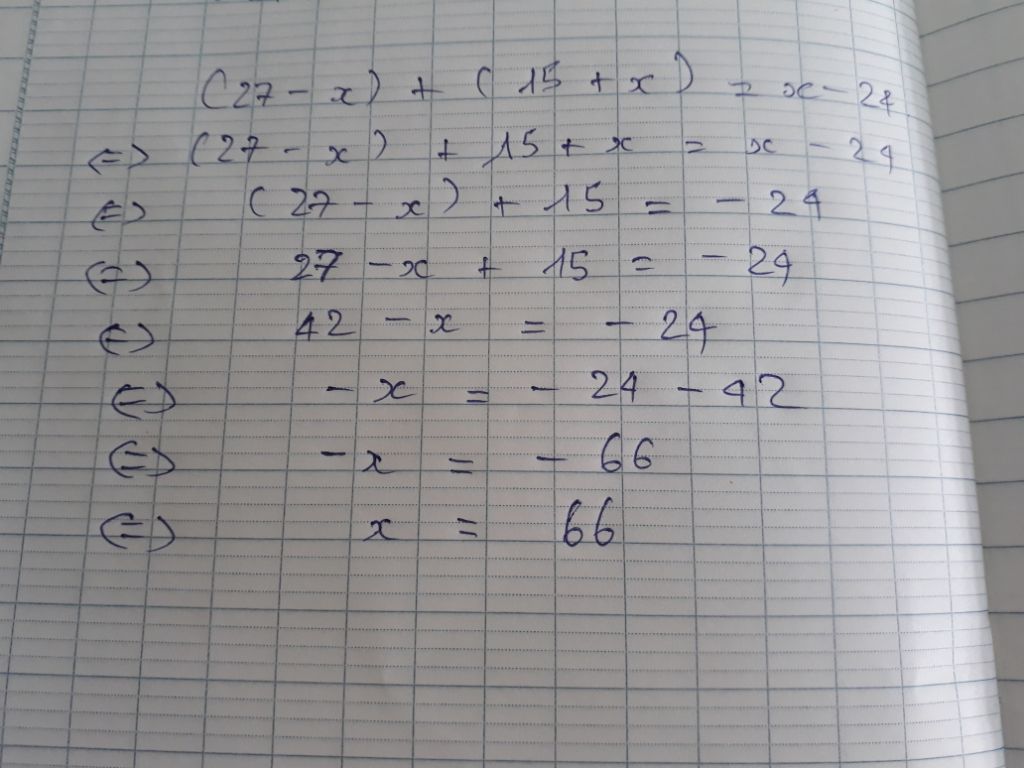 (27 - x) + (15 + x) = x - 24
<=> (27 - x) + 15 + x = x - 24
<=> (27 - x) + 15 = - 24
<=> 27 - x + 15 = - 24
<=> 42 - x = - 24
<=> - x = - 24 - 42
<=> - x = - 66
<=> x = 66